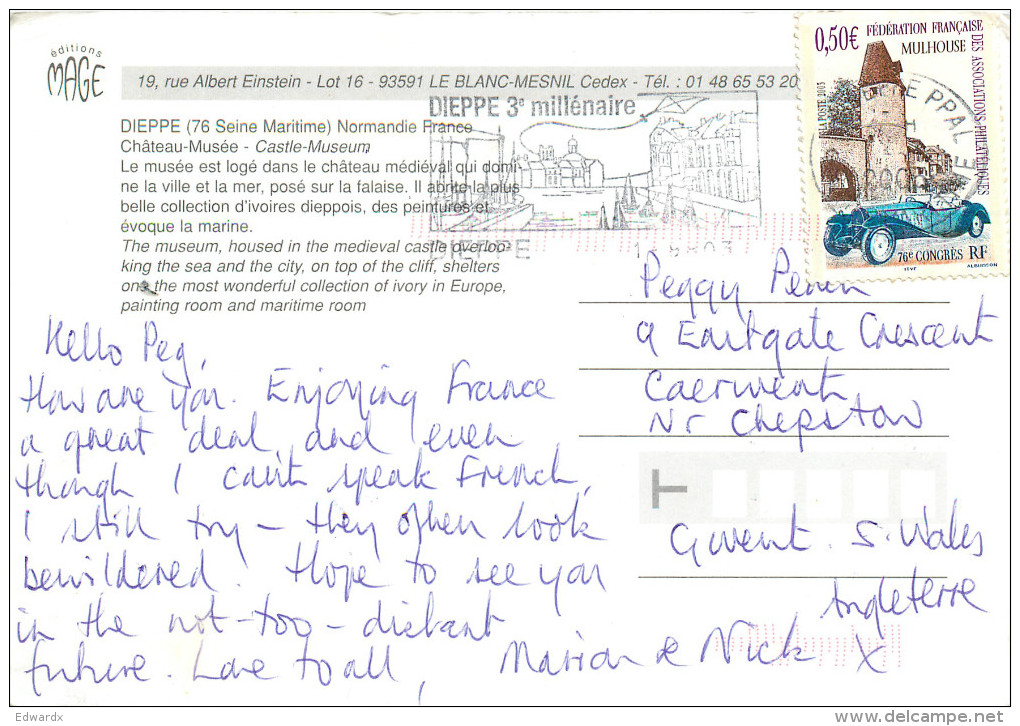 éditions
MAGE
19, rue Albert Einstein - Lot 16 - 93591 LE BLANC-MESNIL Cedex - Tél. : 01 48 65 53 20
DIEPPE 3e millénaire
DIEPPE (76 Seine Maritime) Normandie France
Château-Musée - Castle-Museum
Le musée est logé dans le château médiéval qui domi-
ne la ville et la mer, posé sur la falaise. Il abrite la plus
belle collection d'ivoires dieppois, des peintures et
évoque la marine.
The museum, housed in the medieval castle overloo-
king the sea and the city, on top of the cliff, shelters
one the most wonderful collection of ivory in Europe,
painting room and maritime room
DIEPPE
0,50€
FÉDÉRATION FRANÇAISE
DES ASSOCIATIONS PHILATÉLIQUES
MULHOUSE
LA POSTE 2003
76e CONGRÈS RF
Hello Peg,
How are you. Enjoying France
a great deal, and even
though I can't speak French,
I still try – they often look
bewildered! Hope to see you
in the not-too-distant
future. Love to all, Marion & Nick X
Peggy
9 Eastgate Crescent
Caerwent
Nr Chepstow
Gwent. S. Wales
Angleterre
T
Edwardx
delcampe.net